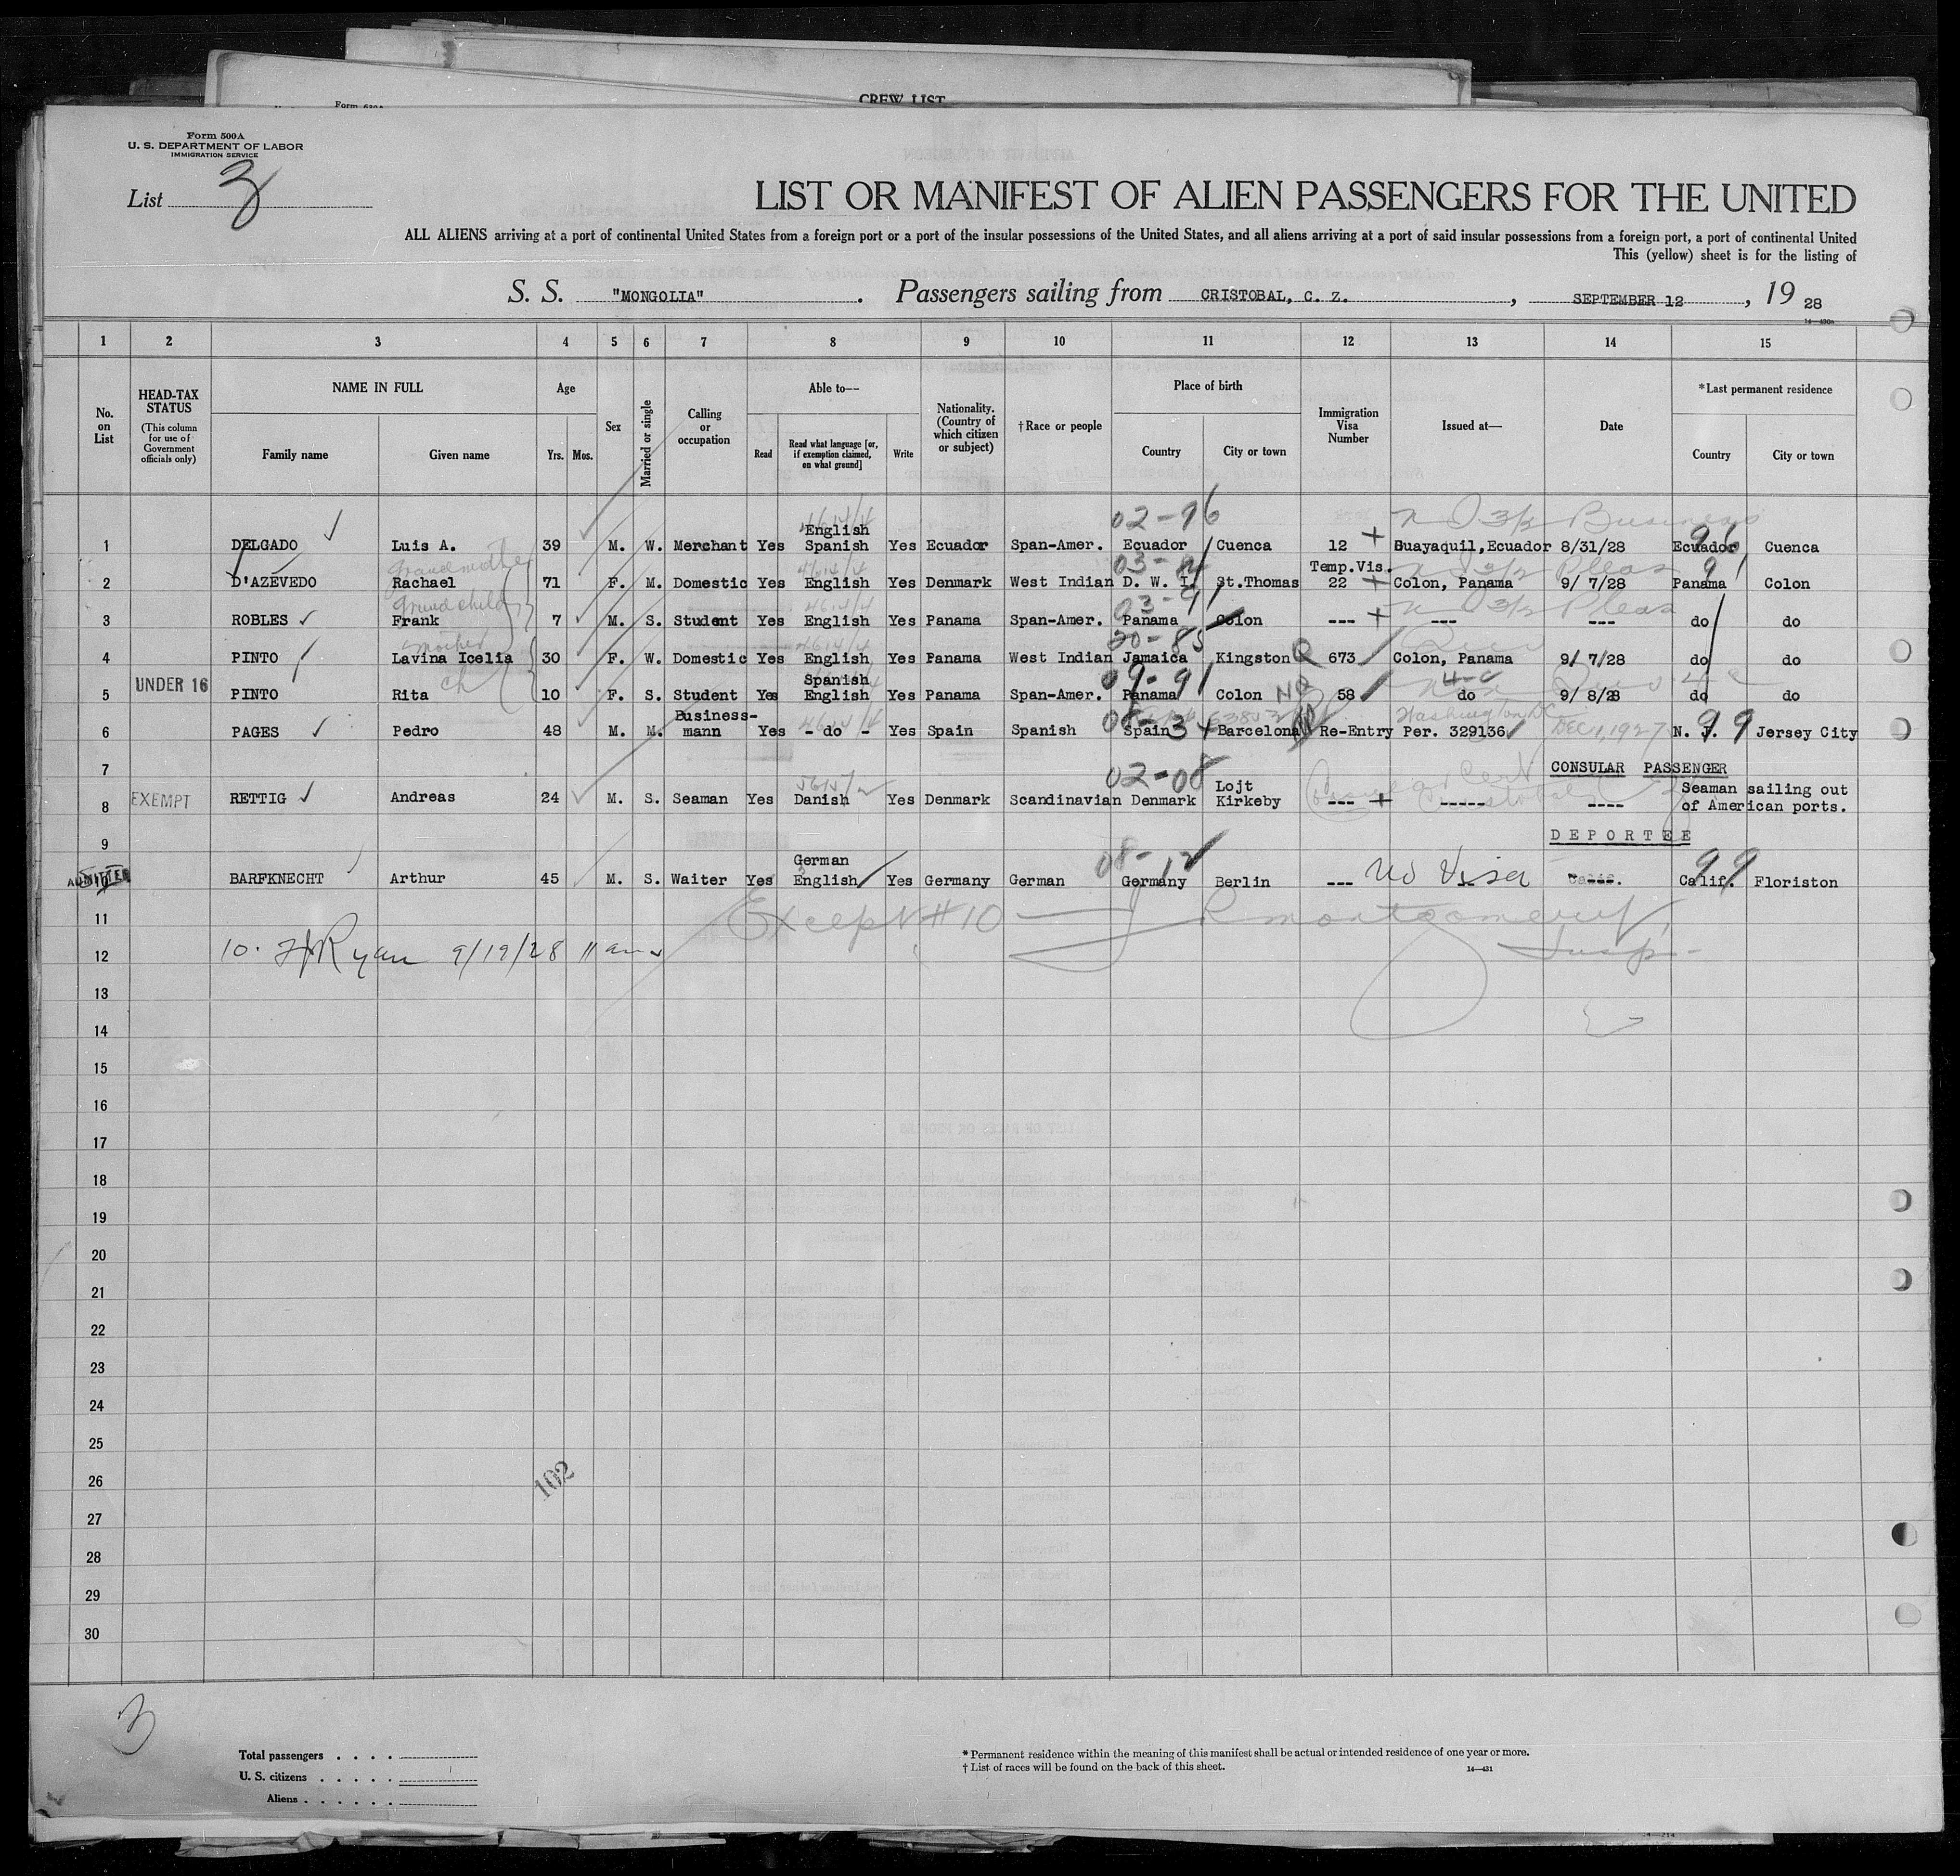 CREW LIST
Form 500A
U. S. DEPARTMENT OF LABOR
IMMIGRATION SERVICE
List 3
LIST OR MANIFEST OF ALIEN PASSENGERS FOR THE UNITED
ALL ALIENS arriving at a port of continental United States from a foreign port or a port of the insular possessions of the United States, and all aliens arriving at a port of said insular possessions from a foreign port, a port of continental United
This (yellow) sheet is for the listing of
S. S. "MONGOLIA" . Passengers sailing from CRISTOBAL, C. Z. , SEPTEMBER 12 , 19 28
1 2 3 4 5 6 7 8 9 10 11 12 13 14 15
No. on List
HEAD-TAX STATUS (This column for use of Government officials only)
NAME IN FULL
Family name Given name
Age
Yrs. Mos.
Sex
Married or single
Calling or occupation
Able to—
Read Read what language [or, if exemption claimed, on what ground] Write
Nationality. (Country of which citizen or subject)
†Race or people
Place of birth
Country City or town
Immigration Visa Number
Issued at—
Date
*Last permanent residence
Country City or town
02-96
1 DELGADO Luis A. 39 M. W. Merchant Yes English Spanish Yes Ecuador Span-Amer. Ecuador Cuenca 12 + Guayaquil, Ecuador 8/31/28 Ecuador Cuenca
Grandmother
2 D'AZEVEDO Rachael 71 F. M. Domestic Yes English Yes Denmark West Indian D. W. I. St.Thomas Temp.Vis. 22 + Colon, Panama 9/ 7/28 Panama Colon
Grandchild 03-91
3 ROBLES Frank 7 M. S. Student Yes English Yes Panama Span-Amer. Panama Colon --- + --- --- do do
mother 20-85
4 PINTO Lavina Icelia 30 F. W. Domestic Yes English Yes Panama West Indian Jamaica Kingston Q 673 Colon, Panama 9/ 7/28 do do
09-91
5 UNDER 16 PINTO Rita ch 10 F. S. Student Yes Spanish English Yes Panama Span-Amer. Panama Colon NQ 58 do 9/ 8/28 do do
Washington DC
6 PAGES Pedro 48 M. M. Business-mann Yes - do - Yes Spain Spanish Spain Barcelona Re-Entry Per. 329136 DEC 1, 1927 N. J. Jersey City
7 CONSULAR PASSENGER
02-08
8 EXEMPT RETTIG Andreas 24 M. S. Seaman Yes Danish Yes Denmark Scandinavian Denmark Lojt Kirkeby --- + ----- ---- Seaman sailing out of American ports.
9 DEPORTEE
08-12
ADMITTED 10 BARFKNECHT Arthur 45 M. S. Waiter Yes German English Yes Germany German Germany Berlin --- No Visa Calif. Floriston
11 Except #10 Montgomery
12 10. Ryan 9/19/28 Insp.
13
14
15
16
17
18
19
20
21
22
23
24
25
26
102
27
28
29
30
3
Total passengers . . . .
U. S. citizens . . . . .
Aliens . . . . . .
* Permanent residence within the meaning of this manifest shall be actual or intended residence of one year or more.
† List of races will be found on the back of this sheet.
14—431